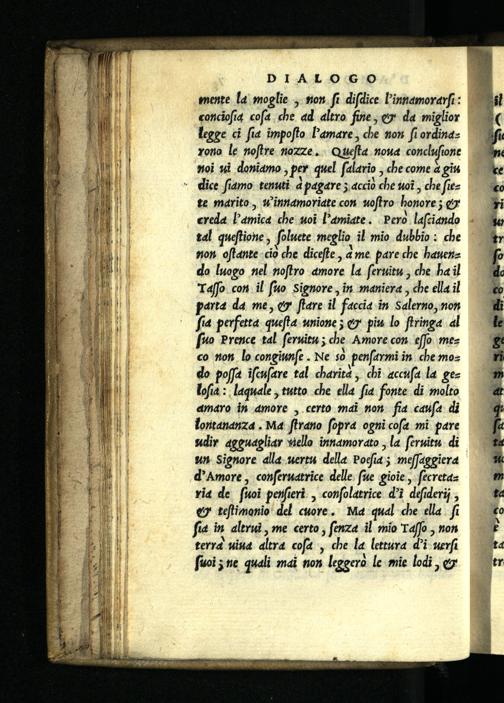 DIALOGO
mente la moglie, non ſi diſdice l'innamorarſi:
concioſia coſa che ad altro fine, & da miglior
legge ci ſia impoſto l'amare, che non ſi ordina=
rono le noſtre nozze. Queſta noua concluſione
noi ui doniamo, per quel ſalario, che come à giu
dice ſiamo tenuti à pagare; acciò che uoi, che ſie=
te marito, u'innamoriate con uoſtro honore; &
creda l'amica che uoi l'amiate. Però laſciando
tal queſtione, ſoluete meglio il mio dubbio: che
non oſtante ciò che diceſte, à me pare che hauen=
do luogo nel noſtro amore la ſeruitu, che ha il
Taſſo con il ſuo Signore, in maniera, che ella il
parta da me, & ſtare il faccia in Salerno, non
ſia perfetta queſta unione; & piu lo ſtringa al
ſuo Prence tal ſeruitu; che Amore con eſſo me=
co non lo congiunſe. Ne sò penſarmi in che mo=
do poſſa iſcuſare tal charità, chi accuſa la ge=
loſia: laquale, tutto che ella ſia fonte di molto
amaro in amore, certo mai non fia cauſa di
lontananza. Ma ſtrano ſopra ogni coſa mi pare
udir agguagliar nello innamorato, la ſeruitu di
un Signore alla uertu della Poeſia; meſſaggiera
d'Amore, conſeruatrice delle ſue gioie, ſecreta=
ria de ſuoi penſieri, conſolatrice d'i deſiderij,
& teſtimonio del cuore. Ma qual che ella ſi
ſia in altrui, me certo, ſenza il mio Taſſo, non
terrà uiua altra coſa, che la lettura d'i uerſi
ſuoi; ne quali mai non leggerò le mie lodi, &